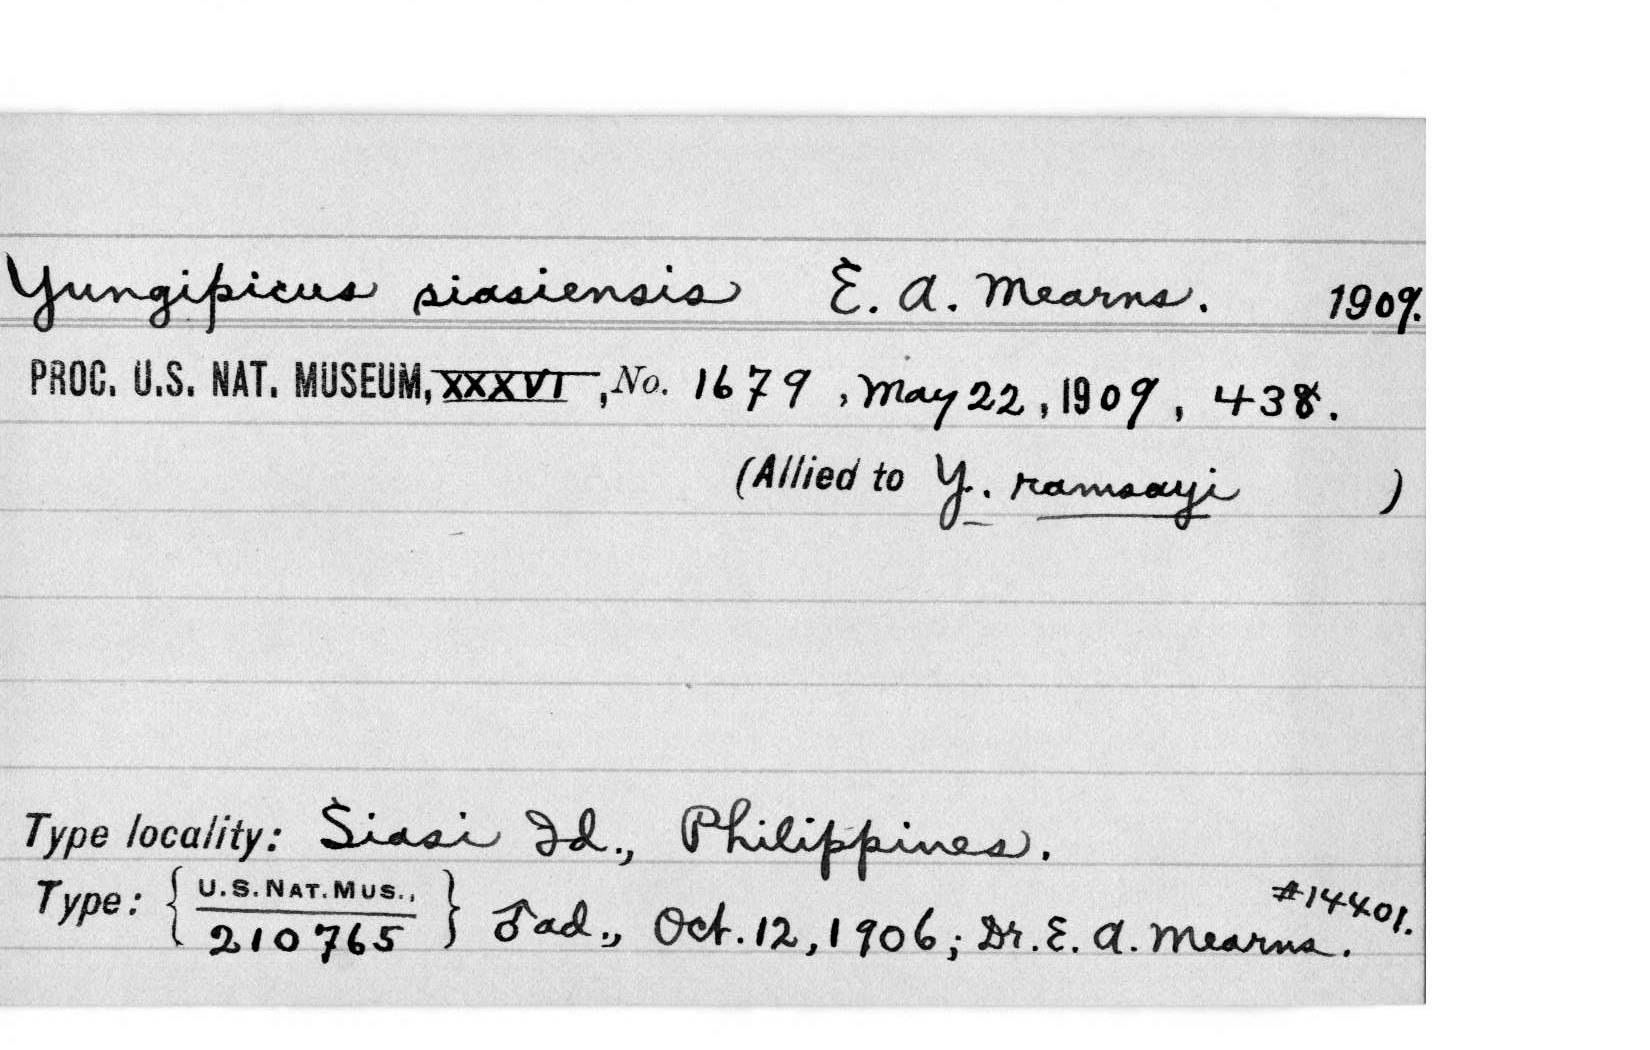 Yungipicus siasiensis E. A. Mearns. 1909.
PROC. U.S. NAT. MUSEUM, XXXVI, No. 1679, May 22, 1909, 438.
(Allied to Y. ramsayi )
Type locality: Siasi Id., Philippines.
#14401.
Type: { U.S. NAT. MUS., 210765 } ♂ ad., Oct. 12, 1906; Dr. E. A. Mearns.